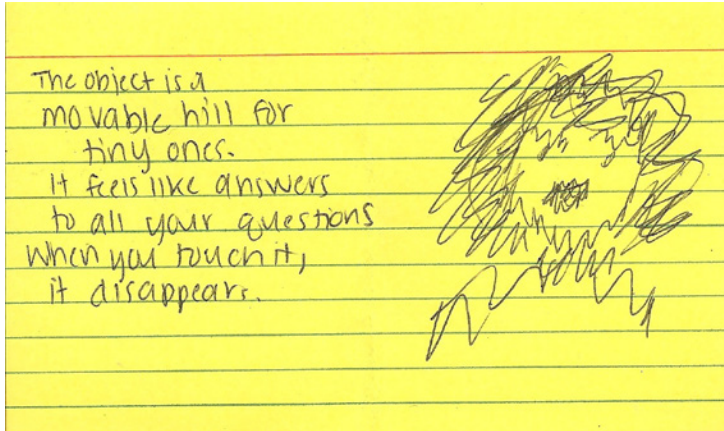 The object is a
movable hill for
tiny ones.
It feels like answers
to all your questions
When you touch it,
it disappears.